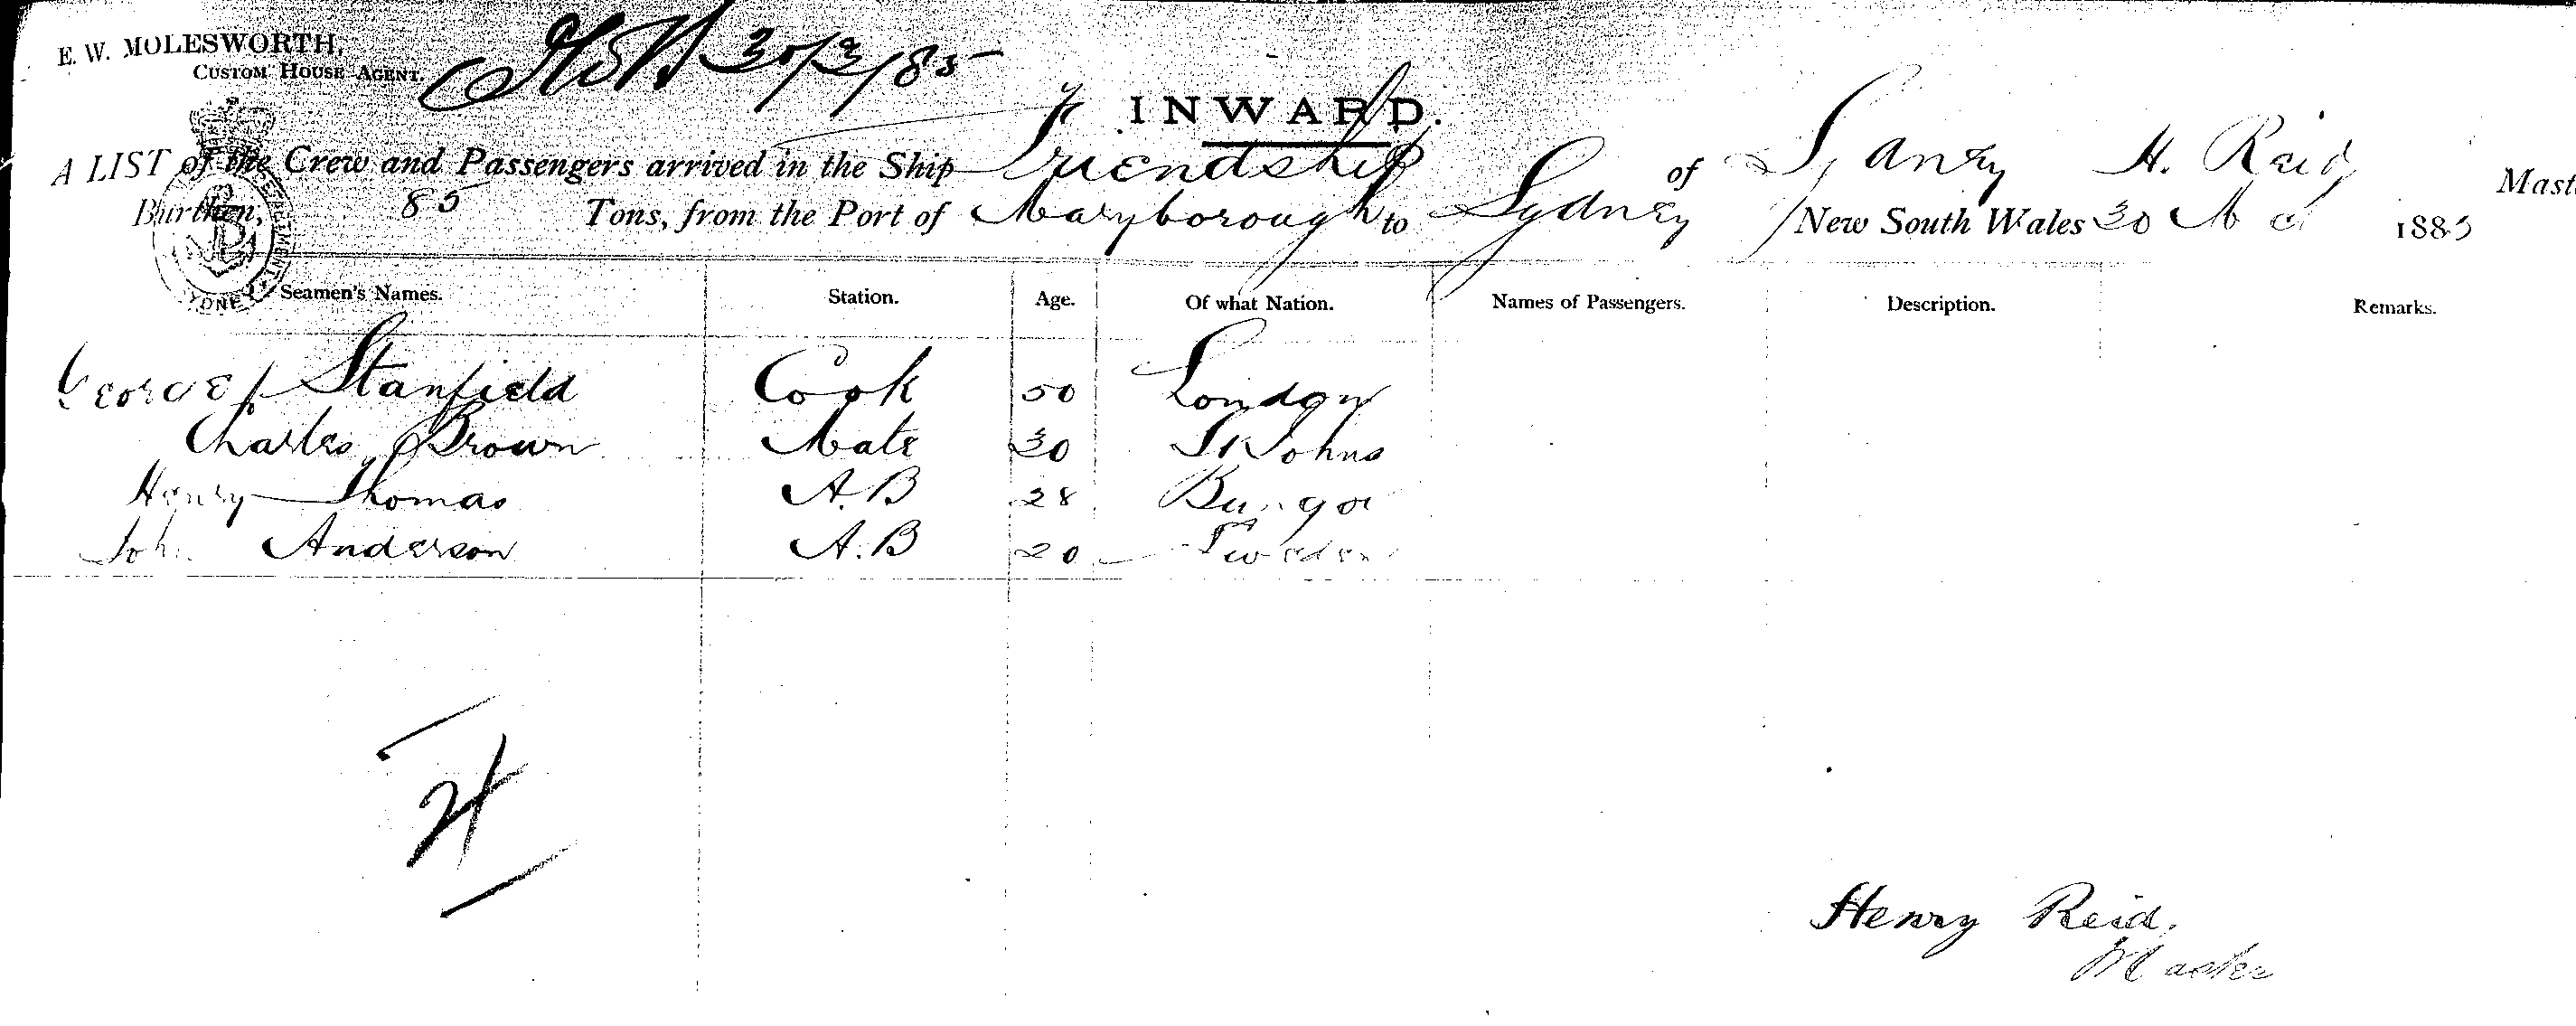 E. W. MOLESWORTH,
CUSTOM HOUSE AGENT.
30/3/85
INWARD.
A LIST of the Crew and Passengers arrived in the Ship Friendship of Sydney H. Reid Mast
Burthen, 85 Tons, from the Port of Maryborough to Sydney New South Wales 30 1885
Seamen's Names. Station. Age. Of what Nation. Names of Passengers. Description. Remarks.
George Stanfield Cook 50 London
Charles Brown Mate 30 St Johns
Henry Thomas A.B 28
John Anderson A.B 20 Sweden
4
Henry Reid,
Master